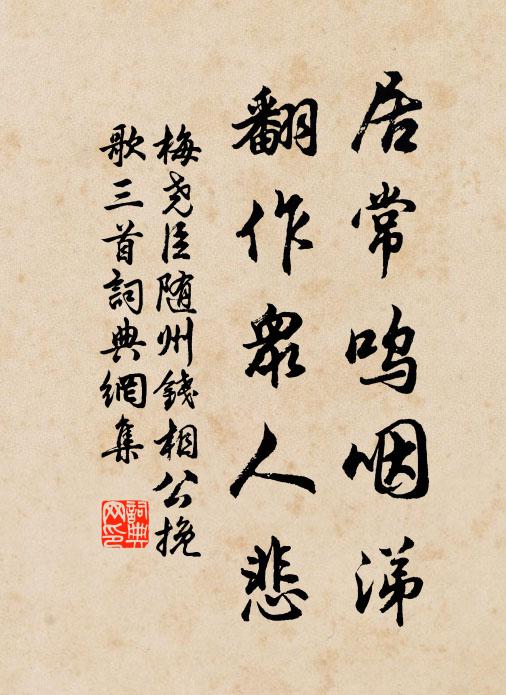 居常鸣咽涕
翻作众人悲
梅尧臣随州钱相公挽
歌三首词典网集
詞典网印